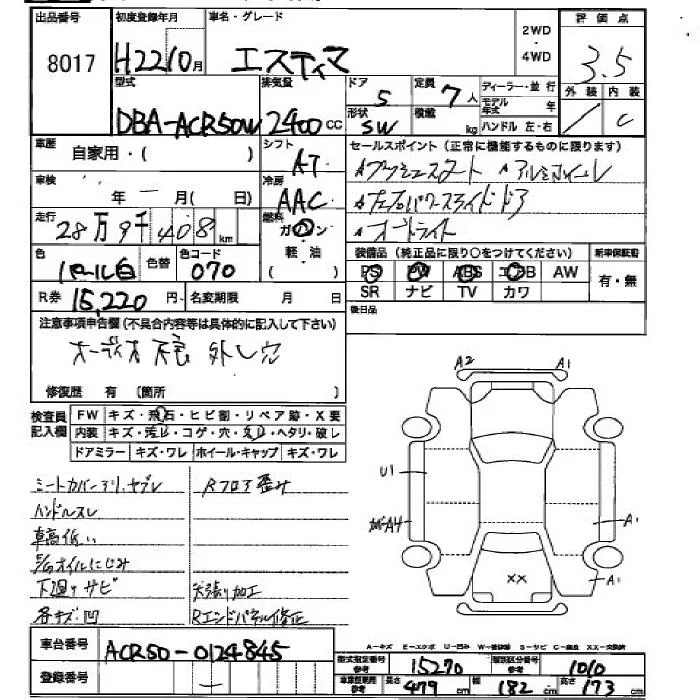 出品番号 8017
初度登録年月 H22 10月
車名・グレード エスティマ
2WD・4WD
評価点 3.5
外装 / 内装 C
型式 DBA-ACR50W
排気量 2400cc
ドア 5
形状 SW
定員 7人
積載 kg
ディーラー・並行
モデル年式 年
ハンドル 左・右
車歴 自家用・( )
シフト AT
車検 年 一 月( 日)
冷房 AAC
走行 28万9千408km
燃料 ガソリン 軽油 ( )
色 パール白 色替
色コード 070
R券 15,220円 名変期限 月 日
セールスポイント(正常に機能するものに限ります)
プッシュスタート アルミホイール
両パワースライドドア
オートライト
装備品(純正品に限り○をつけてください) 新車保証書
PS PW ABS エアB AW 有・無
SR ナビ TV カワ
後日品
注意事項申告欄(不具合内容等は具体的に記入して下さい)
オーディオ不良 外し穴
修復歴 有 (箇所 )
検査員記入欄
FW キズ・飛石・ヒビ割・リペア跡・X要
内装 キズ・汚れ・コゲ・穴・スレ・ヘタリ・破レ
ドアミラー キズ・ワレ ホイール・キャップ キズ・ワレ
シートカバー 、ヤブレ
ハンドルスレ
車高低い
E/Gオイルにじみ
下廻りサビ
各キズ・凹
Rフロア歪み
穴張り加工
Rエンドパネル修正
A2 A1
U1
A4
A1
A1
XX
車台番号 ACR50-0124845
登録番号 —
A-キズ E-エクボ U-凹み S-サビ C-腐食 XX-交換済
型式指定番号 参考 15270
類別区分番号 参考 1010
車庫証明用 参考 長さ 479cm 幅 182cm 高さ 173cm